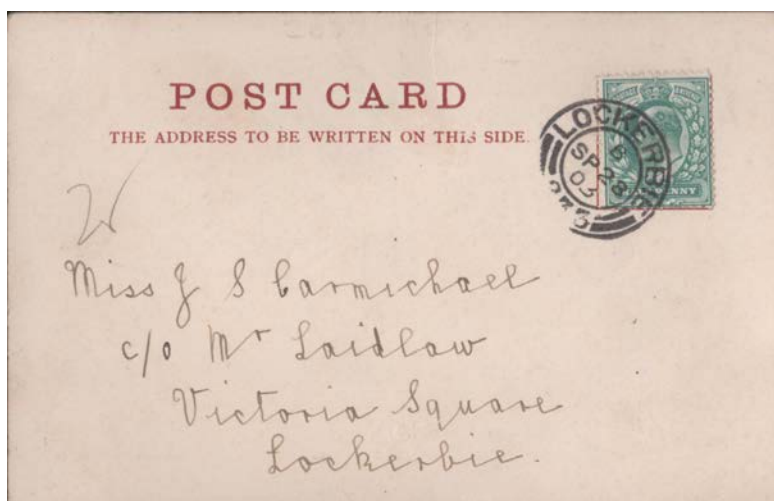 POST CARD
THE ADDRESS TO BE WRITTEN ON THIS SIDE.
LOCKERBIE
B
SP 28
03
233
Miss J S Carmichael
c/o Mr Laidlaw
Victoria Square
Lockerbie.